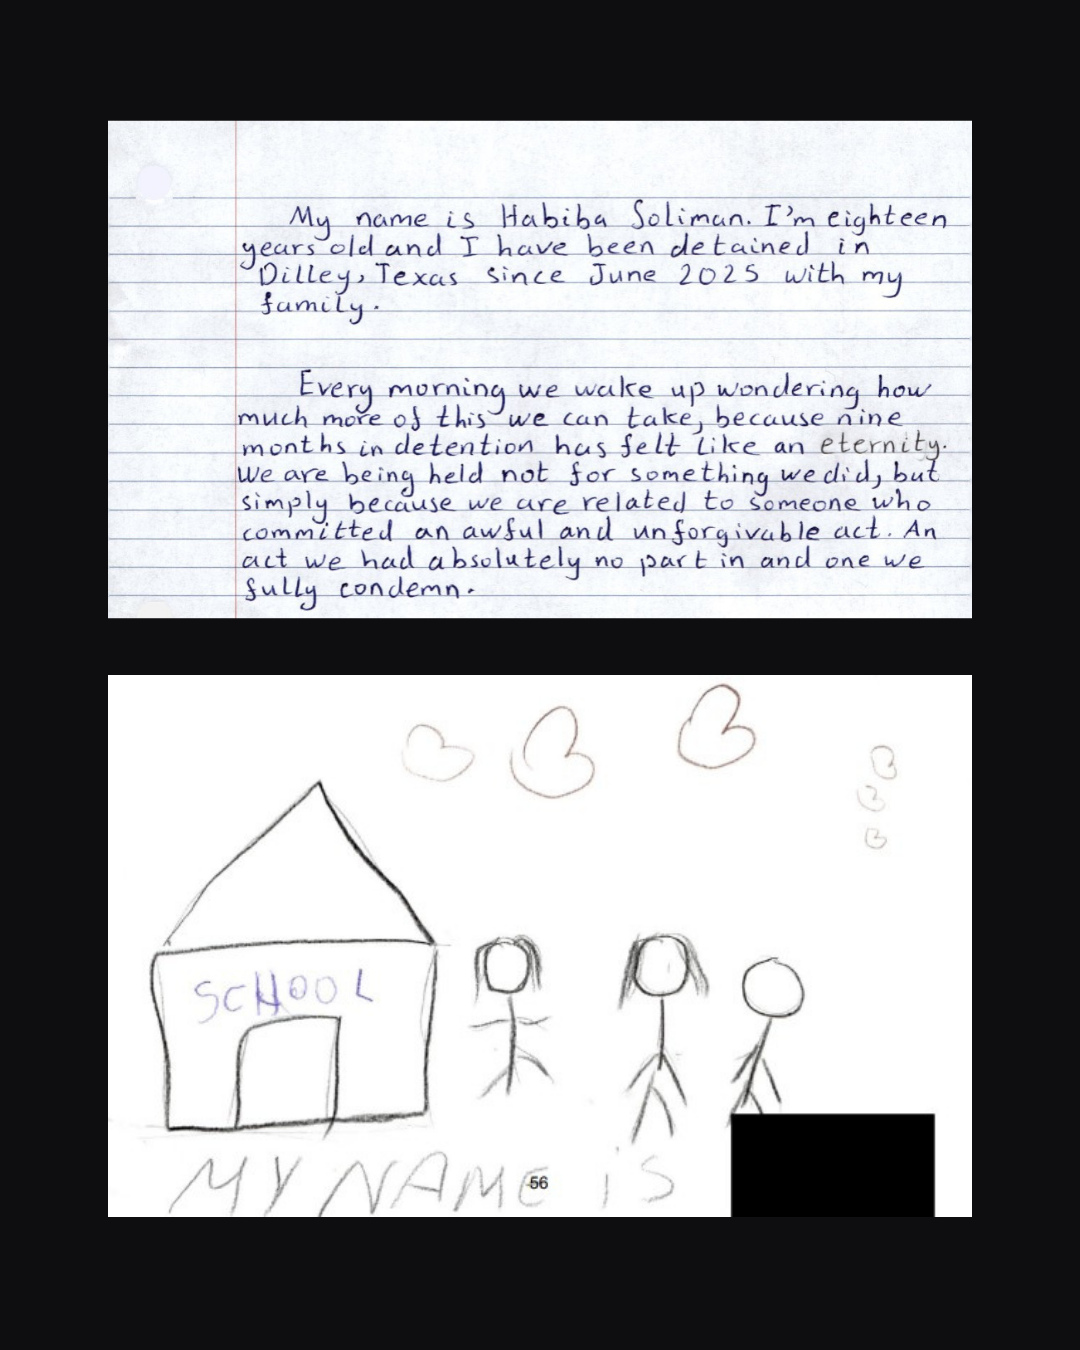 My name is Habiba Soliman. I'm eighteen
years old and I have been detained in
Dilley, Texas since June 2025 with my
family.
Every morning we wake up wondering how
much more of this we can take, because nine
months in detention has felt like an eternity.
We are being held not for something we did, but
simply because we are related to someone who
committed an awful and unforgivable act. An
act we had absolutely no part in and one we
fully condemn.
SCHOOL
MY NAME iS
56